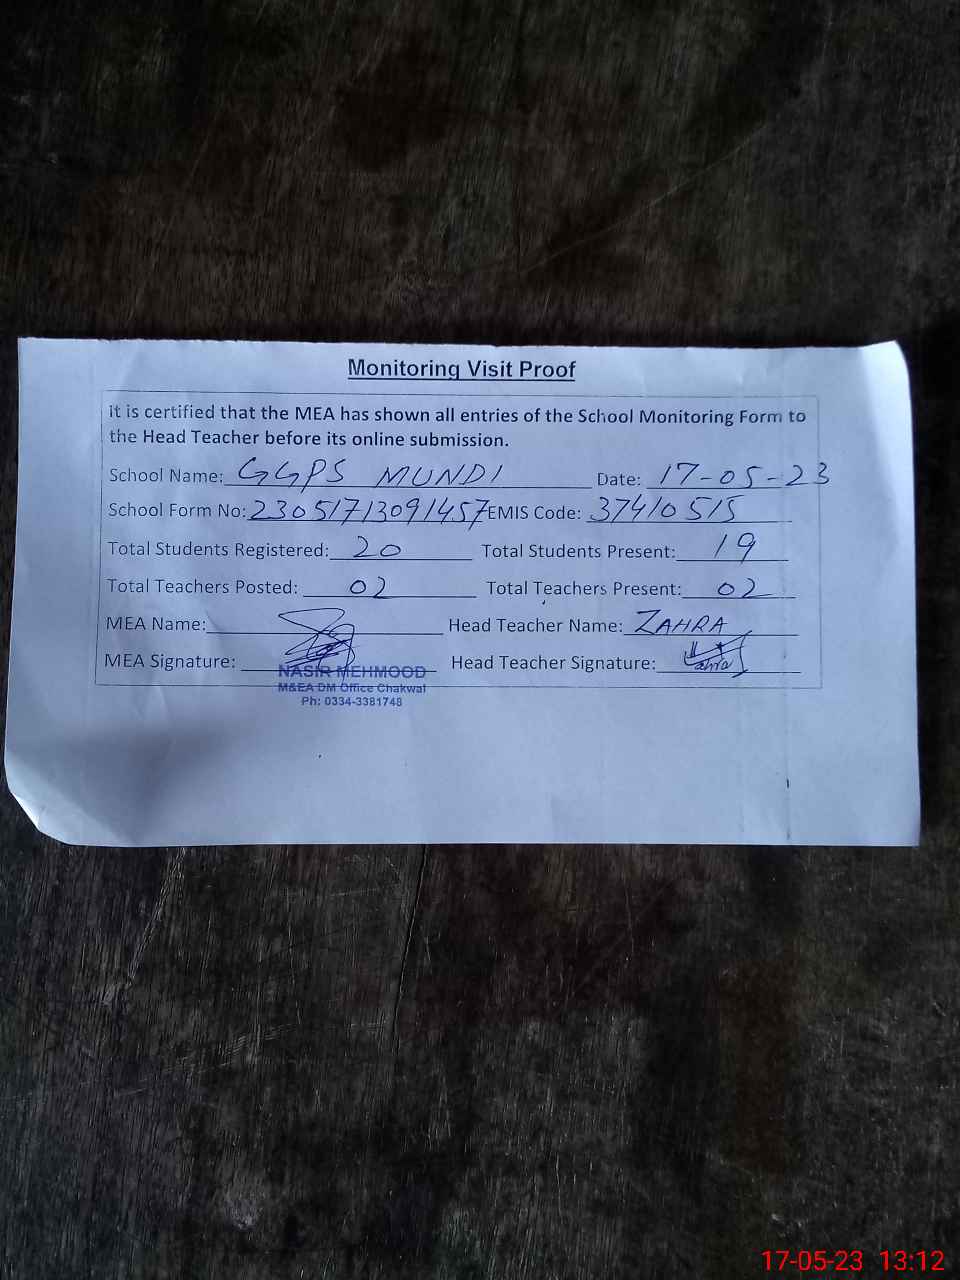 Monitoring Visit Proof
It is certified that the MEA has shown all entries of the School Monitoring Form to
the Head Teacher before its online submission.
School Name: GGPS MUNDI Date: 17-05-23
School Form No: 23051713091457 EMIS Code: 37410515
Total Students Registered: 20 Total Students Present: 19
Total Teachers Posted: 02 Total Teachers Present: 02
MEA Name: Head Teacher Name: ZAHRA
MEA Signature: Head Teacher Signature: Zahra
NASIR MEHMOOD
M&EA DM Office Chakwal
Ph: 0334-3381748
17-05-23 13:12